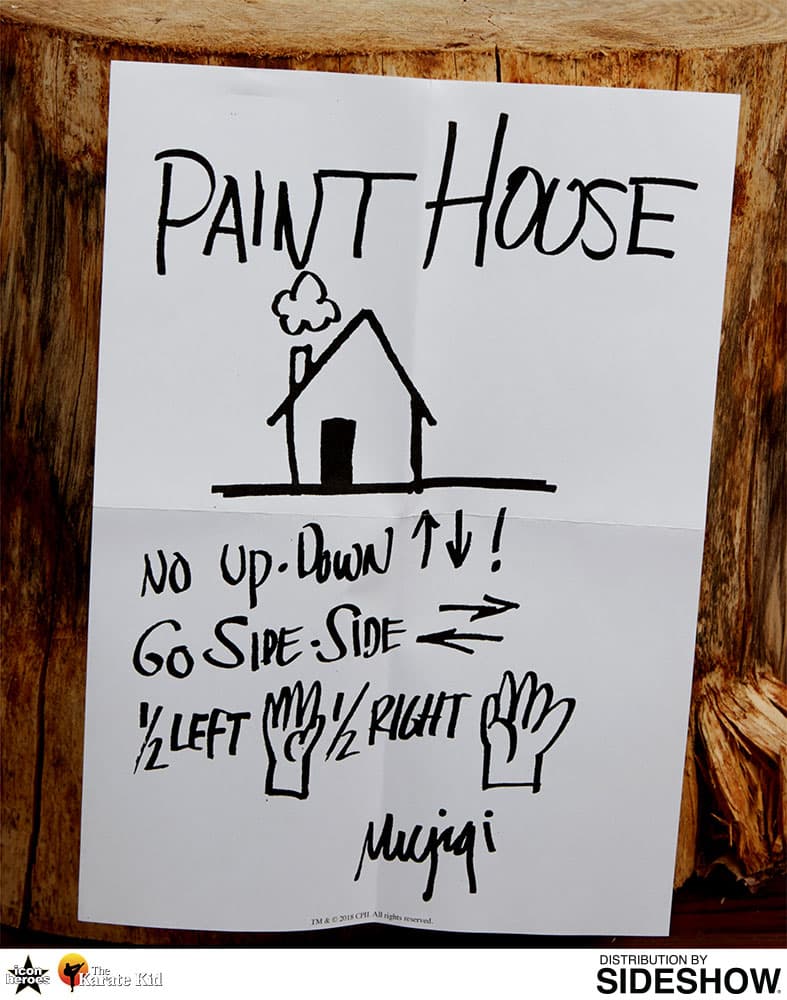 PAINT HOUSE
NO UP-DOWN ↑↓!
GO SIDE-SIDE
½ LEFT ½ RIGHT
Miyagi
TM & © 2018 CPII. All rights reserved.
icon heroes
The Karate Kid
DISTRIBUTION BY
SIDESHOW